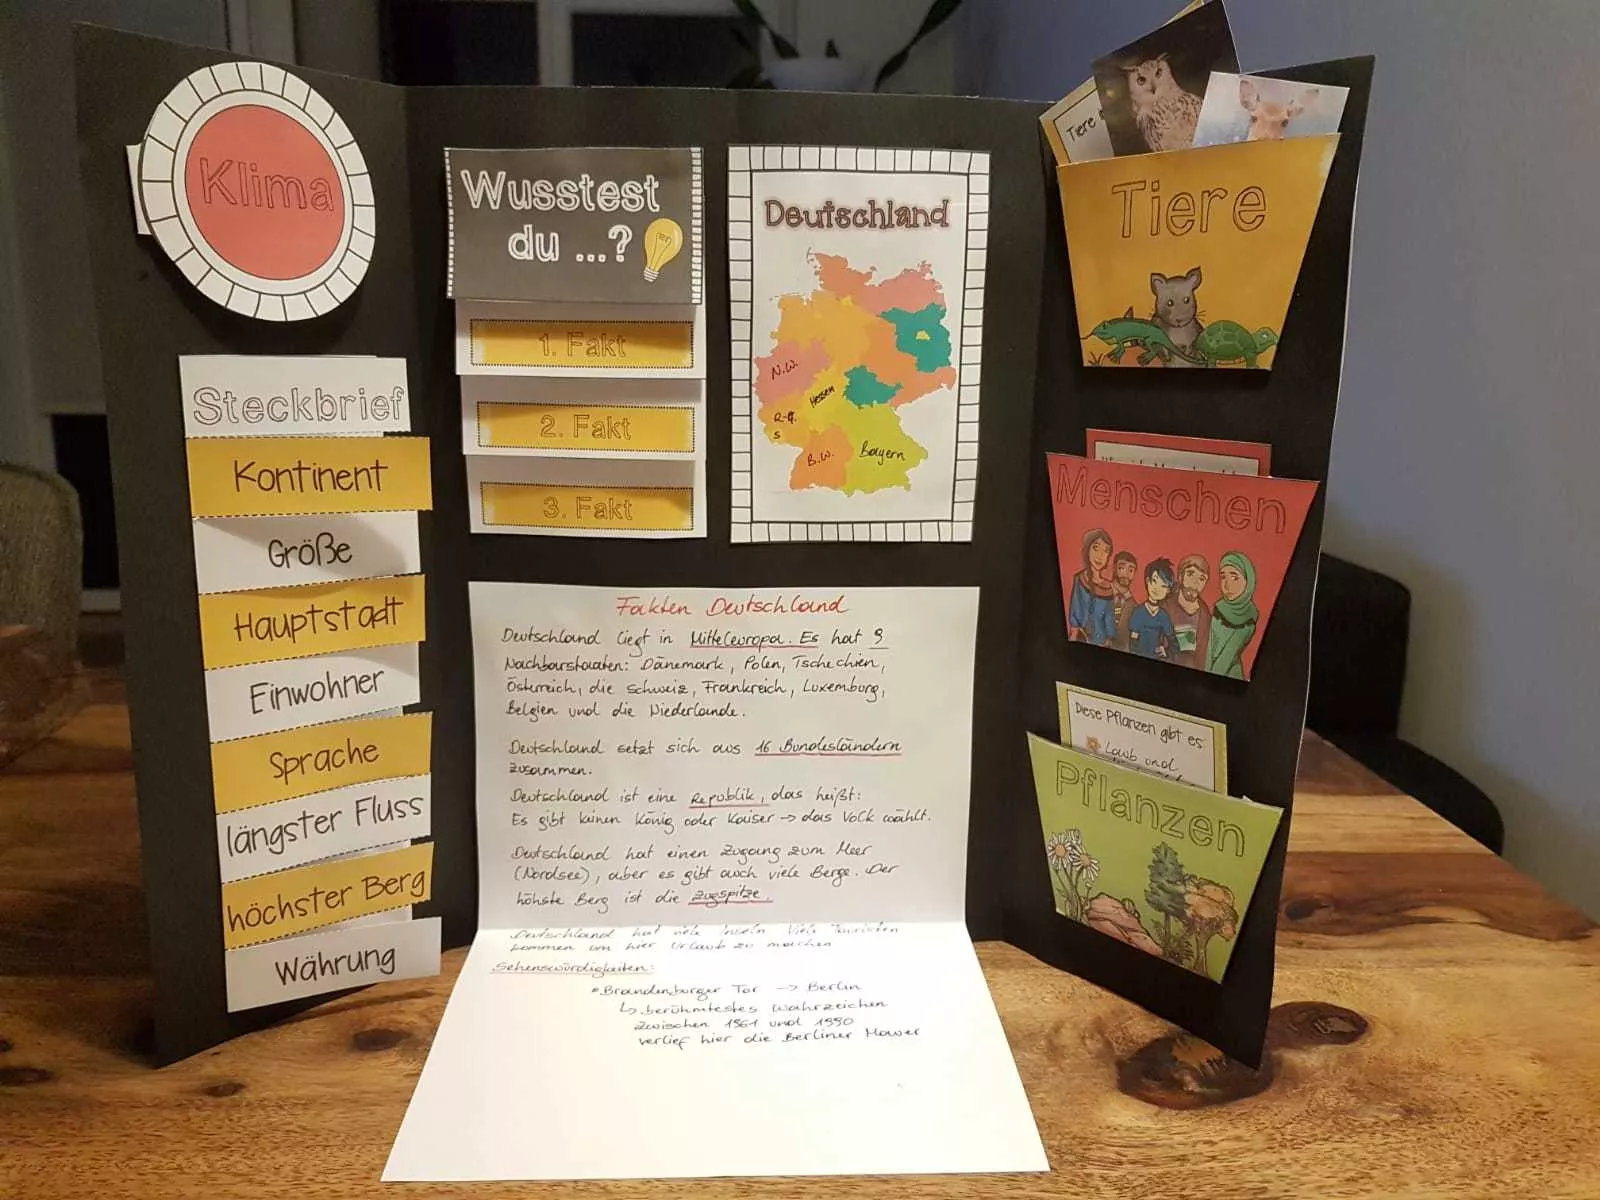 Klima
Steckbrief
Kontinent
Größe
Hauptstadt
Einwohner
Sprache
längster Fluss
höchster Berg
Währung
Wusstest
du ...?
1. Fakt
2. Fakt
3. Fakt
Deutschland
N.W.
Hessen
S
B.W.
Bayern
Fakten Deutschland
Deutschland liegt in Mitteleuropa. Es hat 9
Nachbarstaaten: Dänemark, Polen, Tschechien,
Österreich, die Schweiz, Frankreich, Luxemburg,
Belgien und die Niederlande.
Deutschland setzt sich aus 16 Bundesländern
zusammen.
Deutschland ist eine Republik, das heißt:
Es gibt keinen König oder Kaiser → das Volk wählt.
Deutschland hat einen Zugang zum Meer
(Nordsee), aber es gibt auch viele Berge. Der
höhste Berg ist die Zugspitze.
Deutschland hat viele Inseln. Viele Touristen
kommen um hier Urlaub zu machen
Sehenswürdigkeiten:
• Brandenburger Tor → Berlin
↳ berühmtestes Wahrzeichen
zwischen 1961 und 1990
verlief hier die Berliner Mauer
Tiere
Tiere
Menschen
Diese Pflanzen gibt es:
Laub und
Pflanzen